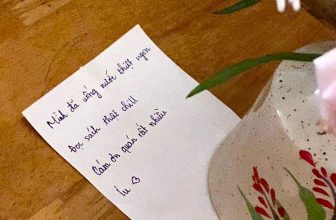 Mình đã uống nước thật ngon
Đọc sách thật chill
Cảm ơn quán rất nhiều
Iu ♡